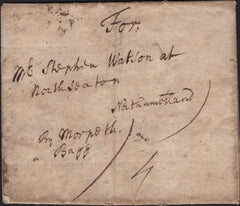 For.
Mr Stephen Watson at
North Seaton
Northumberland
By Morpeth.
Bagg
4